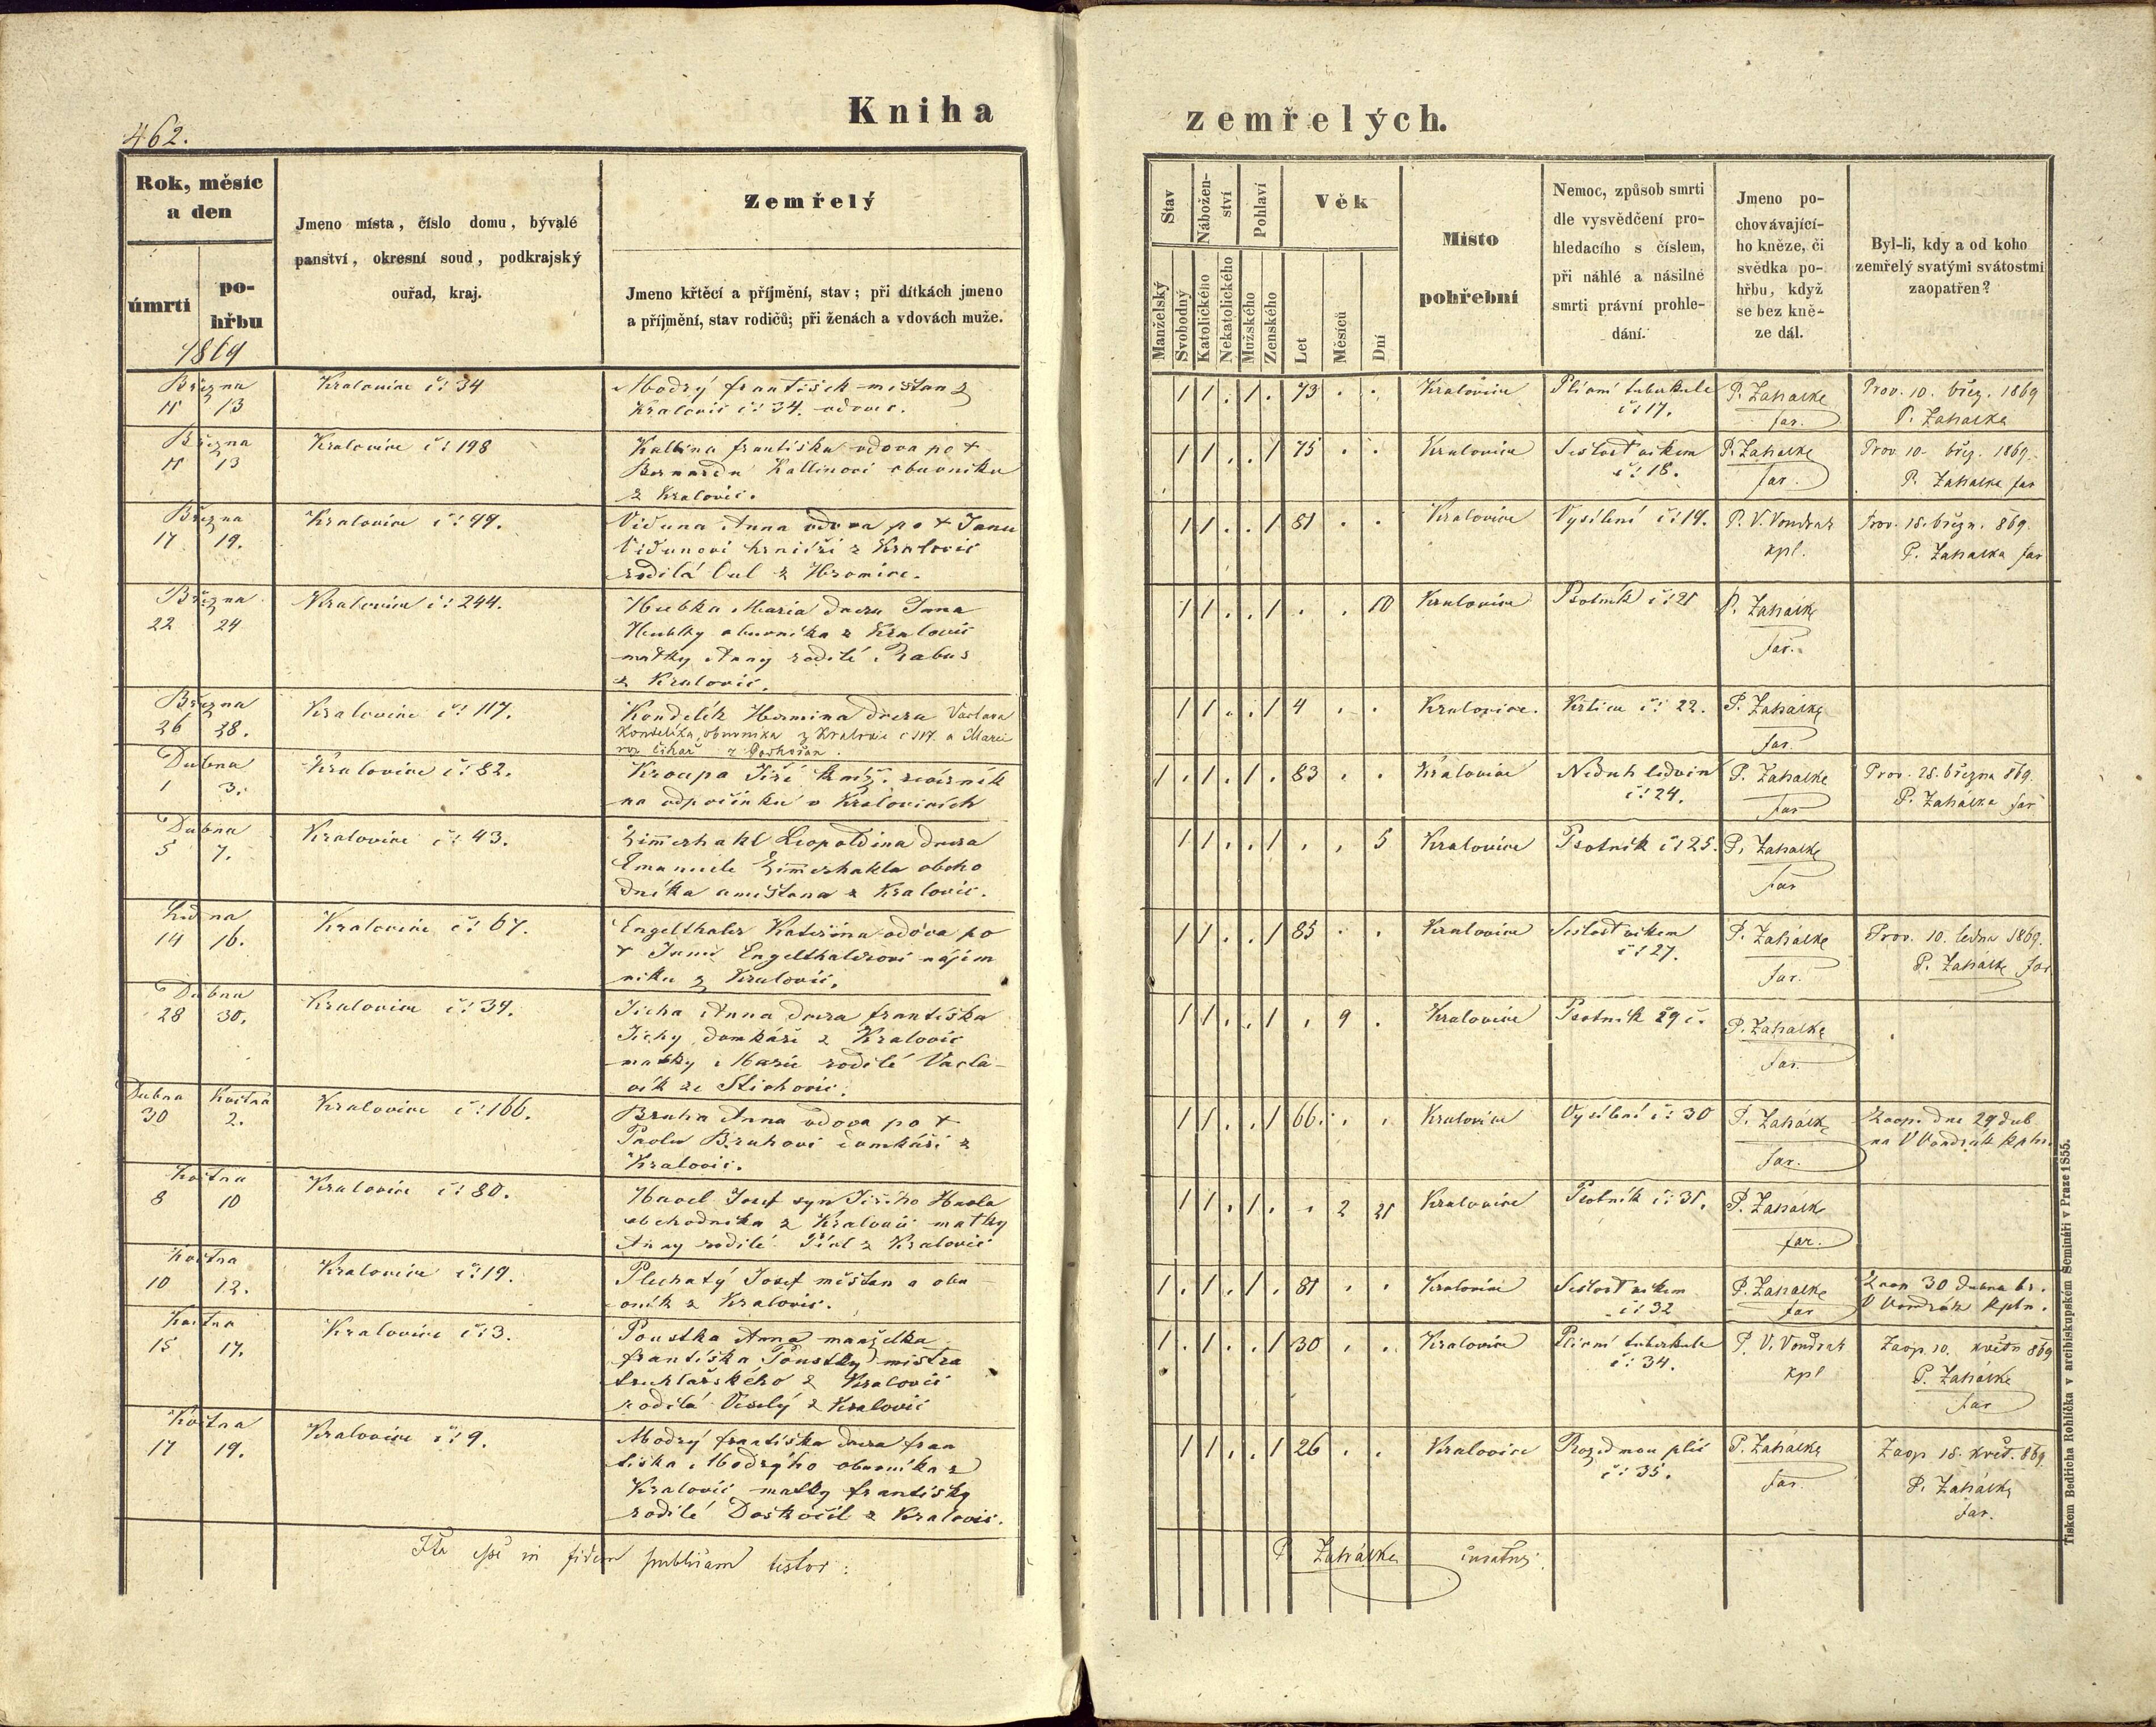 Kniha
zemřelých.
462.
Rok, měsíc
a den
úmrtí
po-
hřbu
1869
Jmeno místa, číslo domu, bývalé
panství, okresní soud, podkrajský
ouřad, kraj.
Zemřelý
Jmeno křtěcí a příjmění, stav; při dítkách jmeno
a příjmění, stav rodičů; při ženách a vdovách muže.
Stav
Nábožen-
ství
Pohlaví
Věk
Manželský
Svobodný
Katolického
Nekatolického
Mužského
Ženského
Let
Měsíců
Dní
Místo
pohřební
Nemoc, způsob smrti
dle vysvědčení pro-
hledacího s číslem,
při náhlé a násilné
smrti právní prohle-
dání.
Jmeno po-
chovávající-
ho kněze, či
svědka po-
hřbu, když
se bez kně-
ze dál.
Byl-li, kdy a od koho
zemřelý svatými svátostmi
zaopatřen?
Března
11 13
Kralovice č: 34
Modrý františek měštan z
Kralovic č: 34. vdovec.
1 1 . 1 . 73 . .
Kralovice
Plicní tuberkule
č: 17.
P. Zahálka
far.
Prov. 10. břez. 1869
P. Zahálka
Března
11 13
Kralovice č: 198
Kallina františka vdova po †
Bernardu Kallinovi obuvníku
z Kralovic.
1 1 . . 1 75 . .
Kralovice
Sešlost věkem
č: 18.
P. Zahálka
far.
Prov. 10. břez. 1869.
P. Zahálka far
Března
17 19.
Kralovice č: 99.
Viduna Anna vdova po † Janu
Vidunovi z Kralovic
rodilá z Hromice.
1 1 . . 1 81 . .
Kralovice
Vysílení č: 19.
P. V. Vondrak
kpl.
Prov. 15. březn. 869.
P. Zahálka far
Března
22 24
Kralovice č: 244.
Hubka Maria dcera Jana
Hubky obuvníka z Kralovic
matky Anny rodilé Rabas
z Kralovic.
1 1 . . 1 . . 10
Kralovice
Psotník č: 21
P. Zahálka
far.
Března
26 28.
Kralovice č: 117.
Kondelík Hermina dcera Václava
Kondelíka, obuvníka z Kralovic č 117. a Marie
roz Cihař z
1 1 . . 1 4 . .
Kralovice.
Krtice č: 22.
P. Zahálka
far.
Dubna
1 3.
Kralovice č: 82.
Kroupa Jiří
na odpočinku v Kralovicích
1 . 1 . 1 . 83 . .
Kralovice
Neduh ledvin
č: 24.
P. Zahálka
far
Prov. 28. března 869.
P. Zahálka far
Dubna
5 7.
Kralovice č: 43.
Zimmerhakl Leopoldina dcera
Emanuele Zimmerhakla obcho
dníka a měštana z Kralovic.
1 1 . . 1 . . 5
Kralovice
Psotník č: 25.
P. Zahálka
far
Ledna
14 16.
Kralovice č: 67.
Engelthaler Kateřina vdova po
† Janu Engelthalerovi nájem
níku z Kralovic.
1 1 . . 1 85 . .
Kralovice
Sešlost věkem
č: 27.
P. Zahálka
far.
Prov. 10. ledna 1869.
P. Zahálka far
Dubna
28 30.
Kralovice č: 39.
Jícha Anna dcera františka
Jíchy domkáře z Kralovic
matky Marie rodilé Václa-
vík ze Stichovic.
1 1 . . 1 . 9 .
Kralovice
Psotník 29 č.
P. Zahálka
far.
Dubna Května
30 2.
Kralovice č: 166.
Bruha Anna vdova po †
Pavlu Bruhovi domkáři z
Kralovic.
1 1 . . 1 66. . .
Kralovice
Vysílení č: 30
P. Zahálka
far.
Zaop. dne 29 dub
na V Vondrák kpln.
Května
8 10
Kralovice č: 80.
Havel Josef syn Jiřího Havla
obchodníka z Kralovic matky
Anny rodilé z Kralovic
1 1 . 1 . . 2 21
Kralovice
Psotník č: 31.
P. Zahálka
far.
Května
10 12.
Kralovice č: 19.
Plechatý Josef měštan a obu
vník z Kralovic.
1 . 1 . 1 . 81 . .
Kralovice
Sešlost věkem
č: 32
P. Zahálka
far
Zaop 30 dubna br.
V Vondrák kpln.
Května
15 17.
Kralovice č: 3.
Poustka Anna manželka
františka Poustky mistra
truhlařského z Kralovic
rodilá Veselý z Kralovic
1 . 1 . . 1 30 . .
Kralovice
Plicní tuberkule
č: 34.
P. V. Vondrak
kpl
Zaop. 10. květn 869
P. Zahálka
far
Května
17 19.
Kralovice č: 9.
Modrý františka dcera fran
tiška Modrýho obuvníka z
Kralovic matky františky
rodilé Doskočil z Kralovic.
1 1 . . 1 26 . .
Kralovice
Rozedmou plic
č: 35.
P. Zahálka
far.
Zaop 18. květ. 869
P. Zahálka
far.
Ita esse in fidem publicam testor:
P. Zahálka curatus.
Tiskem Bedřicha Rohlíčka v arcibiskupském Semináři v Praze 1855.